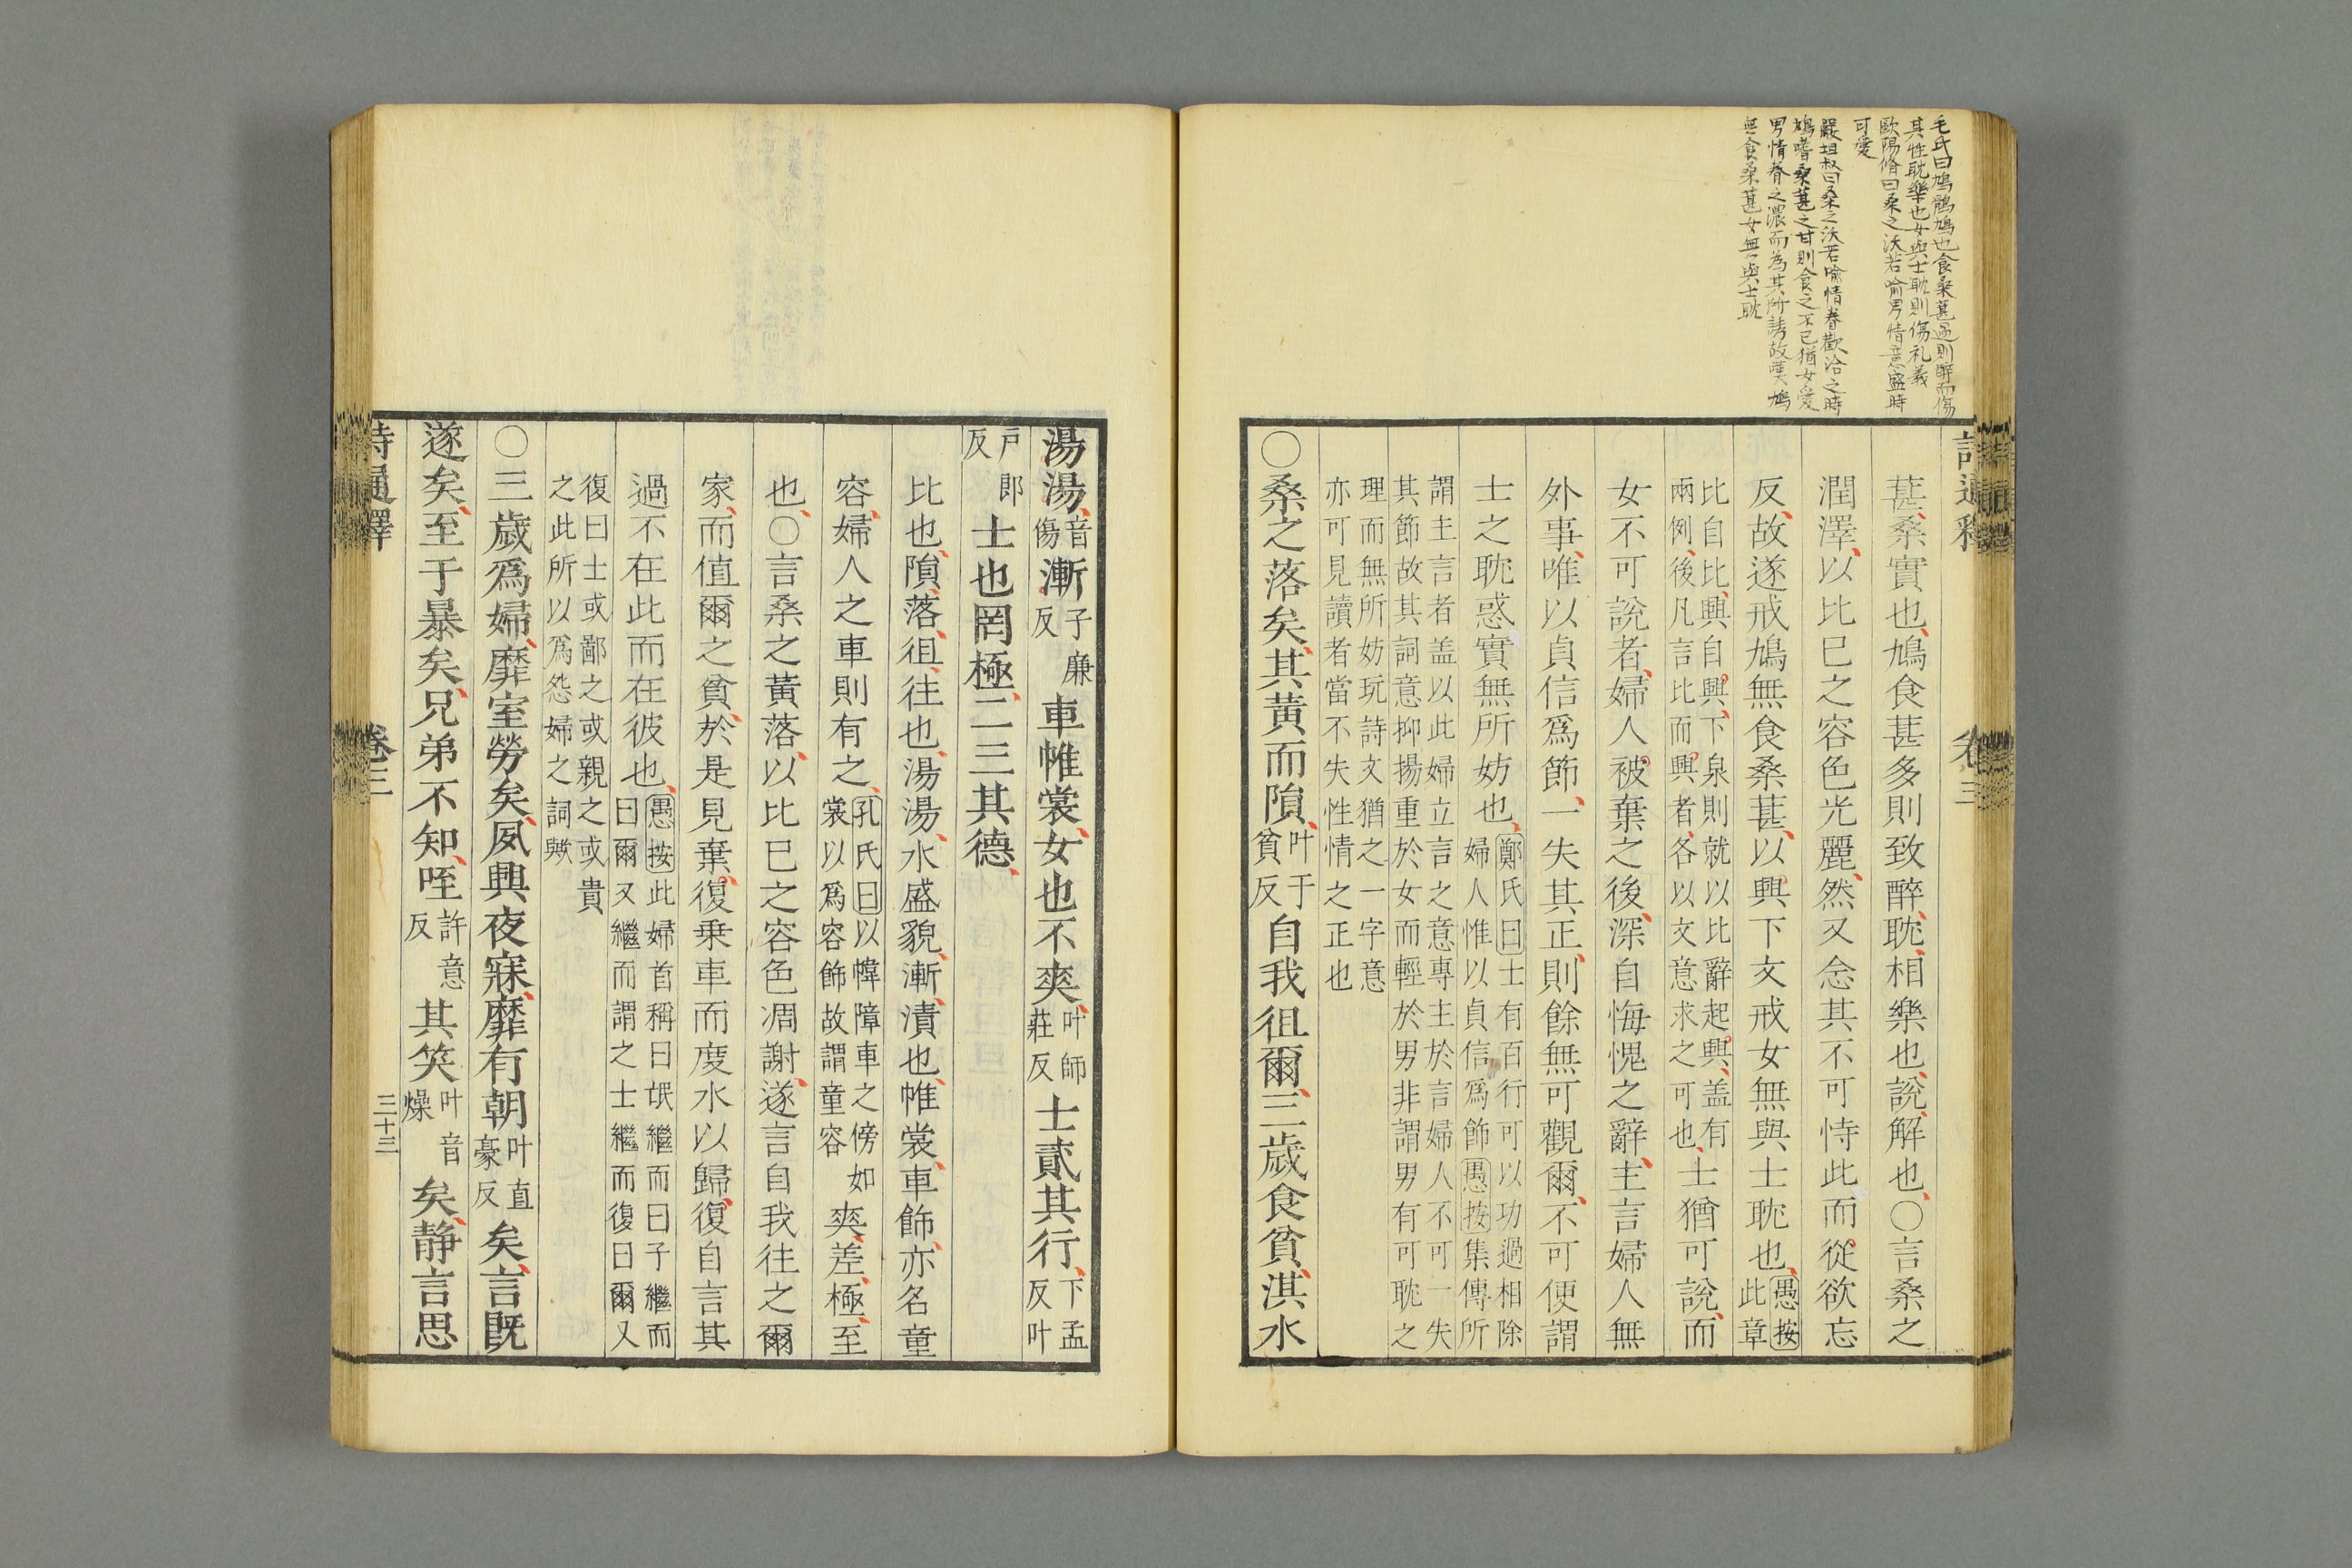 毛氏曰鳩鶻鳩也食桑葚過則醉而傷
其性耽樂也女與士耽則傷礼義
歐陽脩曰桑之沃若喻男情意盛時
可愛
嚴坦叔曰桑之沃若喻情眷歡洽之時
鳩嗜桑葚之甘則食之不已猶女愛
男情眷之濃而為其所誘故嘆鳩
無食桑葚女無與士耽
詩通釋 卷三
葚桑實也鳩食葚多則致醉耽相樂也說解也○言桑之
潤澤以比巳之容色光麗然又念其不可恃此而從欲忘
反故遂戒鳩無食桑葚以興下文戒女無與士耽也愚按此章
比自比興自興下泉則就以比辭起興盖有兩例後凡言比而興者各以文意求之可也士猶可說而
女不可說者婦人被棄之後深自悔愧之辭主言婦人無
外事唯以貞信爲節一失其正則餘無可觀爾不可便謂
士之耽惑實無所妨也鄭氏曰士有百行可以功過相除婦人惟以貞信爲節愚按集傳所
謂主言者盖以此婦立言之意專主於言婦人不可一失其節故其詞意抑揚重於女而輕於男非謂男有可耽之
理而無所妨玩詩文猶之一字意亦可見讀者當不失性情之正也
○桑之落矣其黃而隕叶于貧反自我徂爾三歲食貧淇水
湯湯音傷漸子廉反車帷裳女也不爽叶師莊反士貳其行下孟反叶
戸郎反士也罔極二三其德
比也隕落徂往也湯湯水盛貌漸漬也帷裳車飾亦名童
容婦人之車則有之孔氏曰以幃障車之傍如裳以爲容飾故謂童容爽差極至
也○言桑之黃落以比巳之容色凋謝遂言自我往之爾
家而值爾之貧於是見棄復乗車而度水以歸復自言其
過不在此而在彼也愚按此婦首稱曰氓繼而曰子繼而曰爾又繼而謂之士繼而復曰爾又
復曰士或鄙之或親之或貴之此所以爲怨婦之詞歟
○三歲爲婦靡室勞矣夙興夜寐靡有朝叶直豪反矣言既
遂矣至于暴矣兄弟不知咥許意反其笑叶音燥矣静言思
詩通釋 卷三 三十三